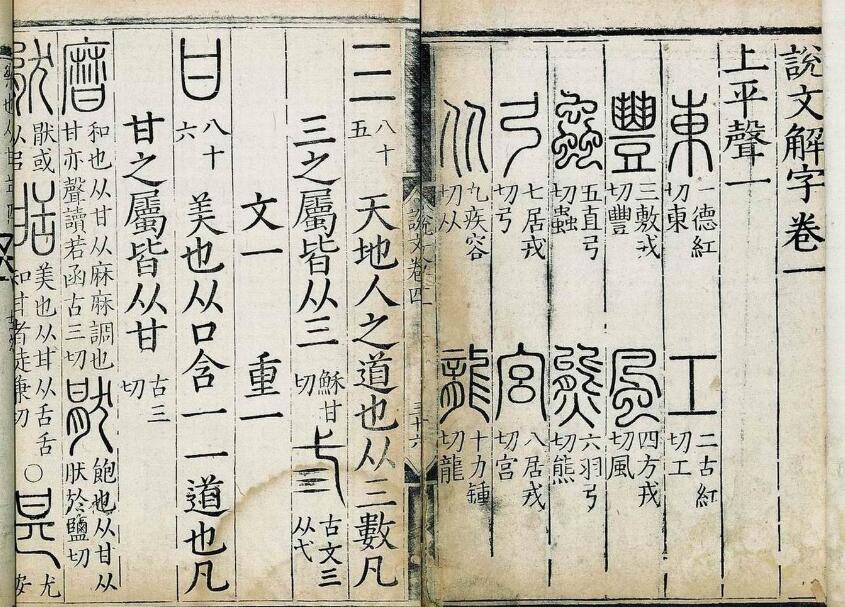 說文解字卷一
上平聲一
東 一德紅切東 工 二古紅切工
豐 三敷戎切豐 風 四方戎切風
蟲 五直弓切蟲 熊 六羽弓切熊
弓 七居戎切弓 宮 八居戎切宮
从 九疾容切从 龍 十力鍾切龍
說文卷四 三十六
三 八十五 天地人之道也从三數凡
三之屬皆从三 穌甘切 弎 古文三从弋
文一 重一
甘 八十六 美也从口含一一道也凡
甘之屬皆从甘 古三切
𠪚 和也从甘从麻麻調也甘亦聲讀若函古三切 猒 飽也从甘从肰於鹽切
猒或从㠯 甛 美也从甘从舌舌知甘者徒兼切 ○ 甚 尤安